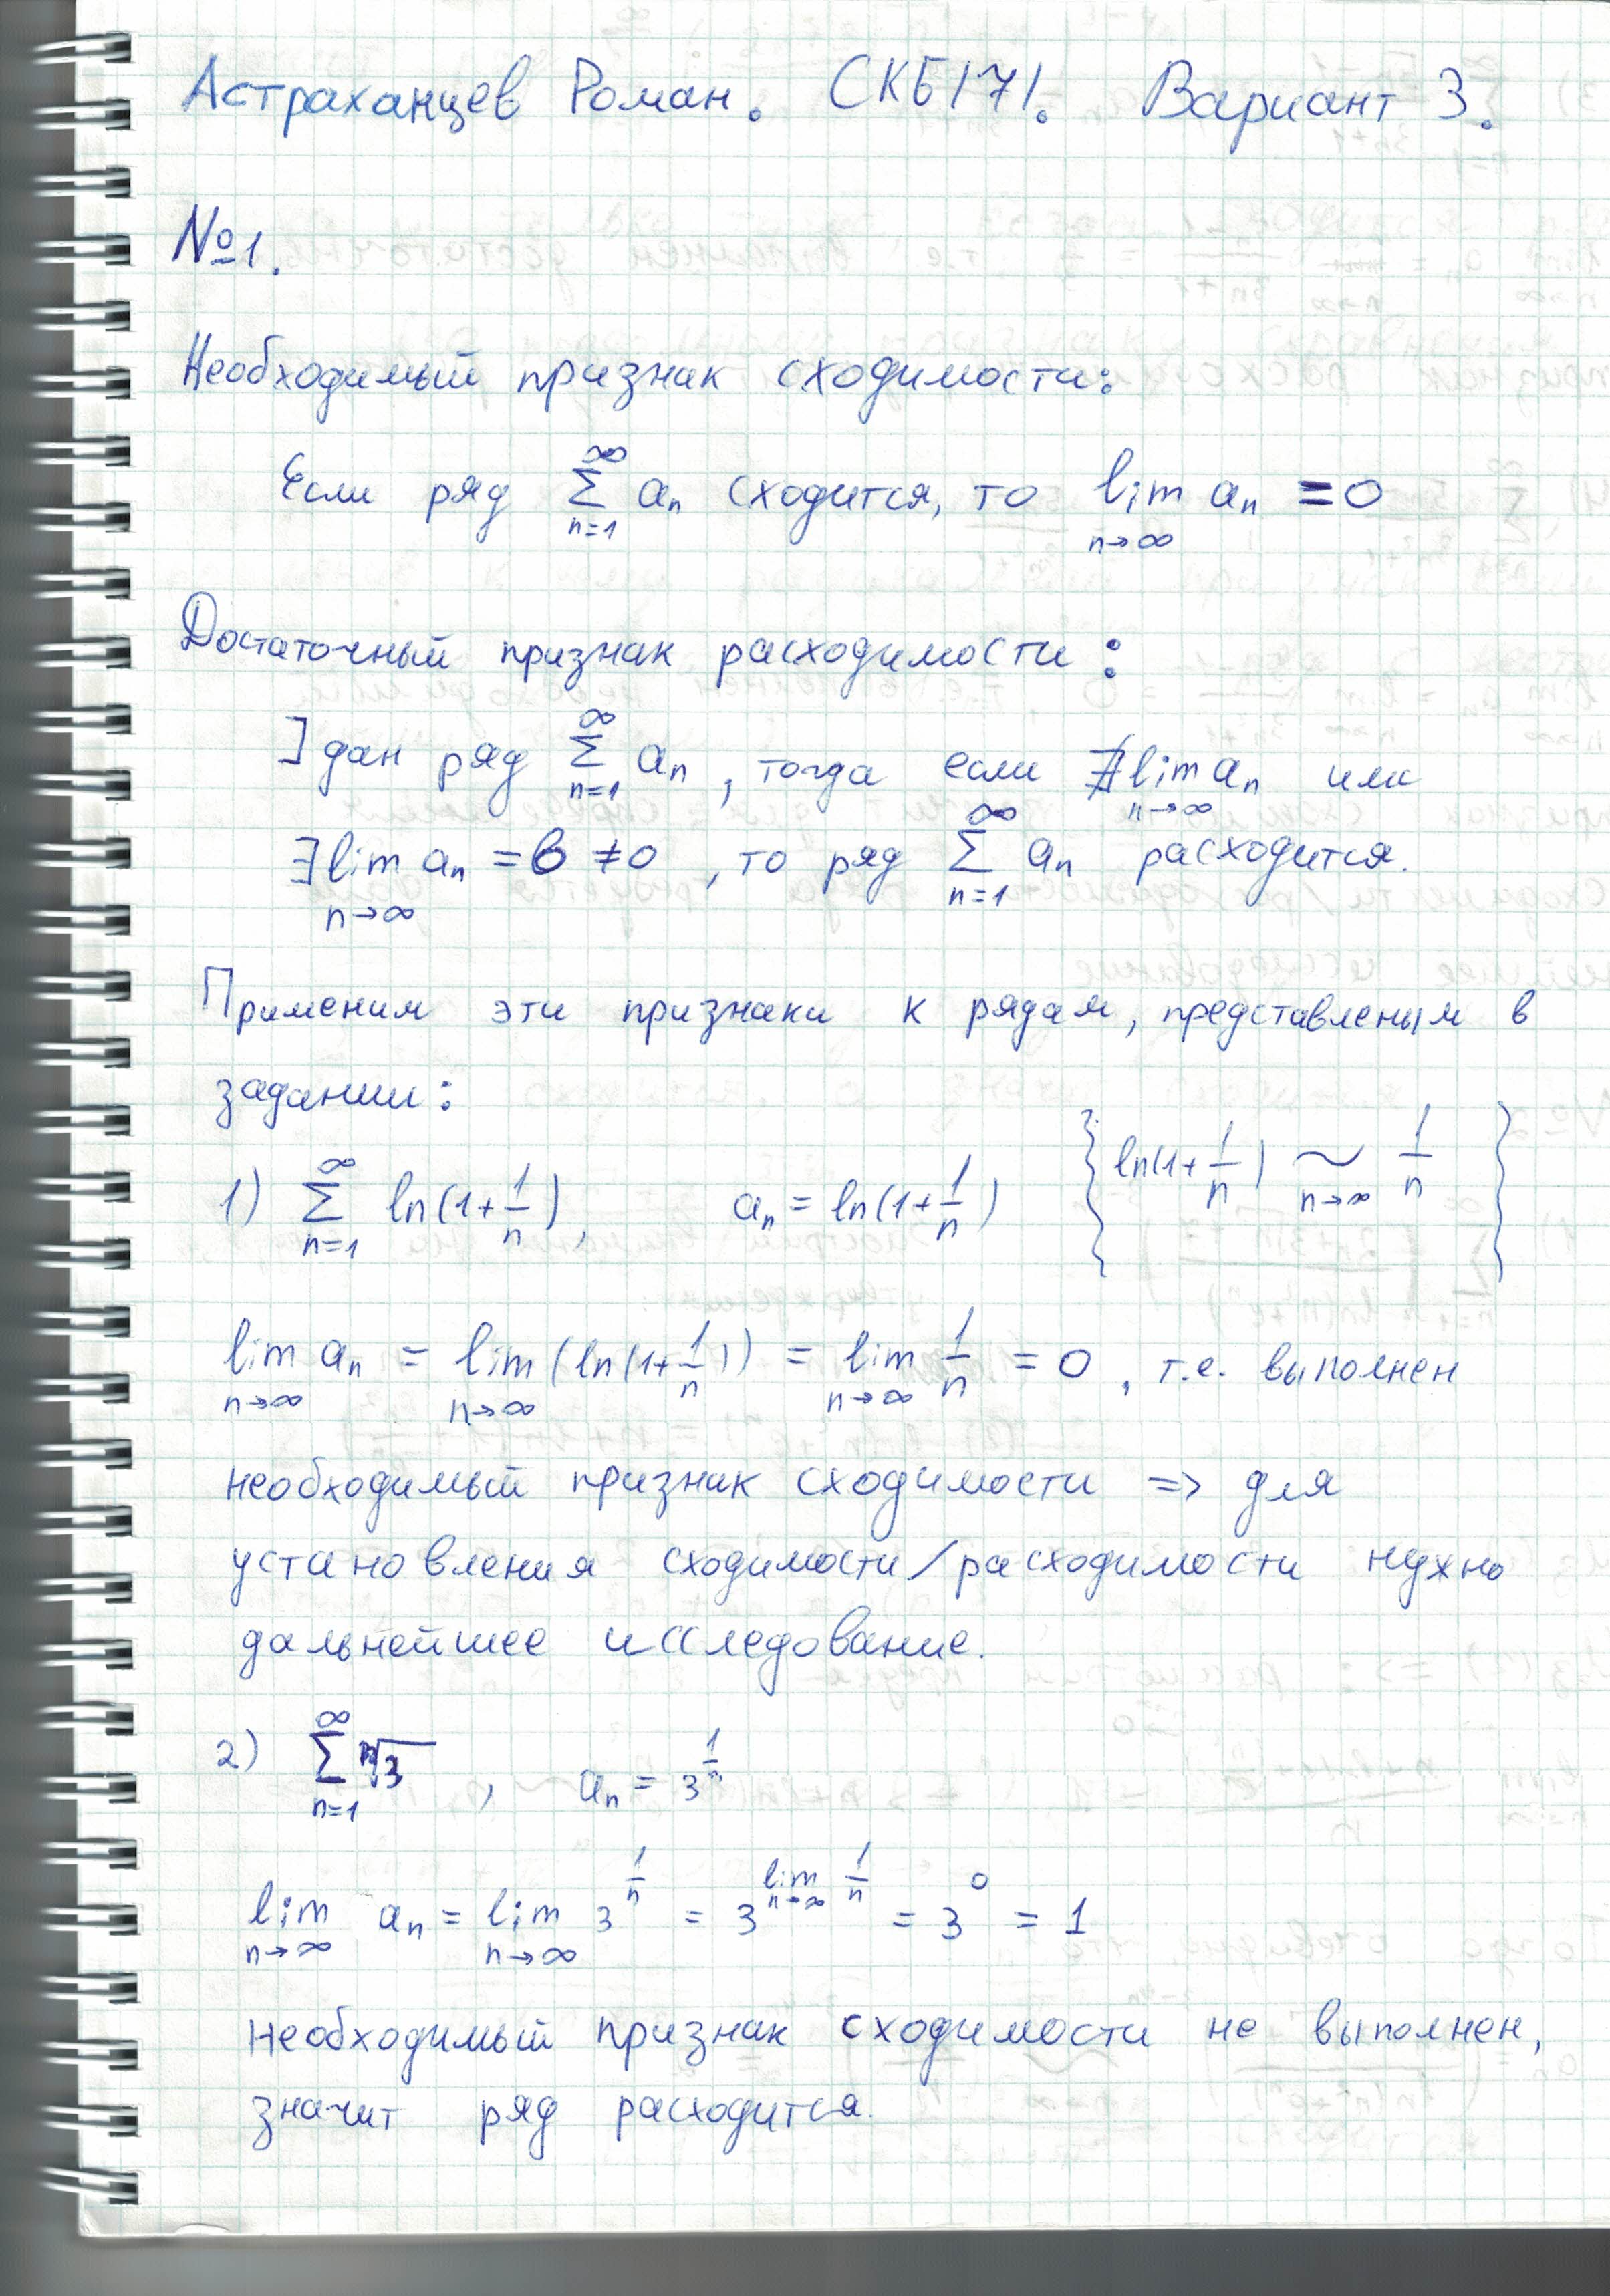 Астраханцев Роман. СКБ171. Вариант 3.
№1.
Необходимый признак сходимости:
Если ряд ∑_{n=1}^{∞} aₙ сходится, то lim_{n→∞} aₙ = 0
Достаточный признак расходимости:
] дан ряд ∑_{n=1}^{∞} aₙ, тогда если ∄ lim_{n→∞} aₙ или
∃ lim_{n→∞} aₙ = b ≠ 0, то ряд ∑_{n=1}^{∞} aₙ расходится.
Применим эти признаки к рядам, представленым в
задании:
1) ∑_{n=1}^{∞} ln(1+1/n), aₙ = ln(1+1/n) {ln(1+1/n) ~_{n→∞} 1/n}
lim_{n→∞} aₙ = lim_{n→∞} (ln(1+1/n)) = lim_{n→∞} 1/n = 0, т.е. выполнен
необходимый признак сходимости => для
установления сходимости/расходимости нужно
дальнейшее исследование.
2) ∑_{n=1}^{∞} ⁿ√3, aₙ = 3^{1/n}
lim_{n→∞} aₙ = lim_{n→∞} 3^{1/n} = 3^{lim_{n→∞} 1/n} = 3^0 = 1
Необходимый признак сходимости не выполнен,
значит ряд расходится.